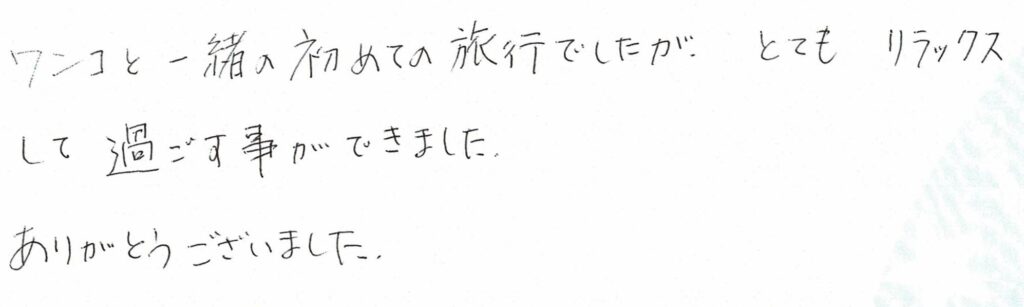 ワンコと一緒の初めての旅行でしたが、とても リラックス
して 過ごす事ができました.
ありがとうございました.